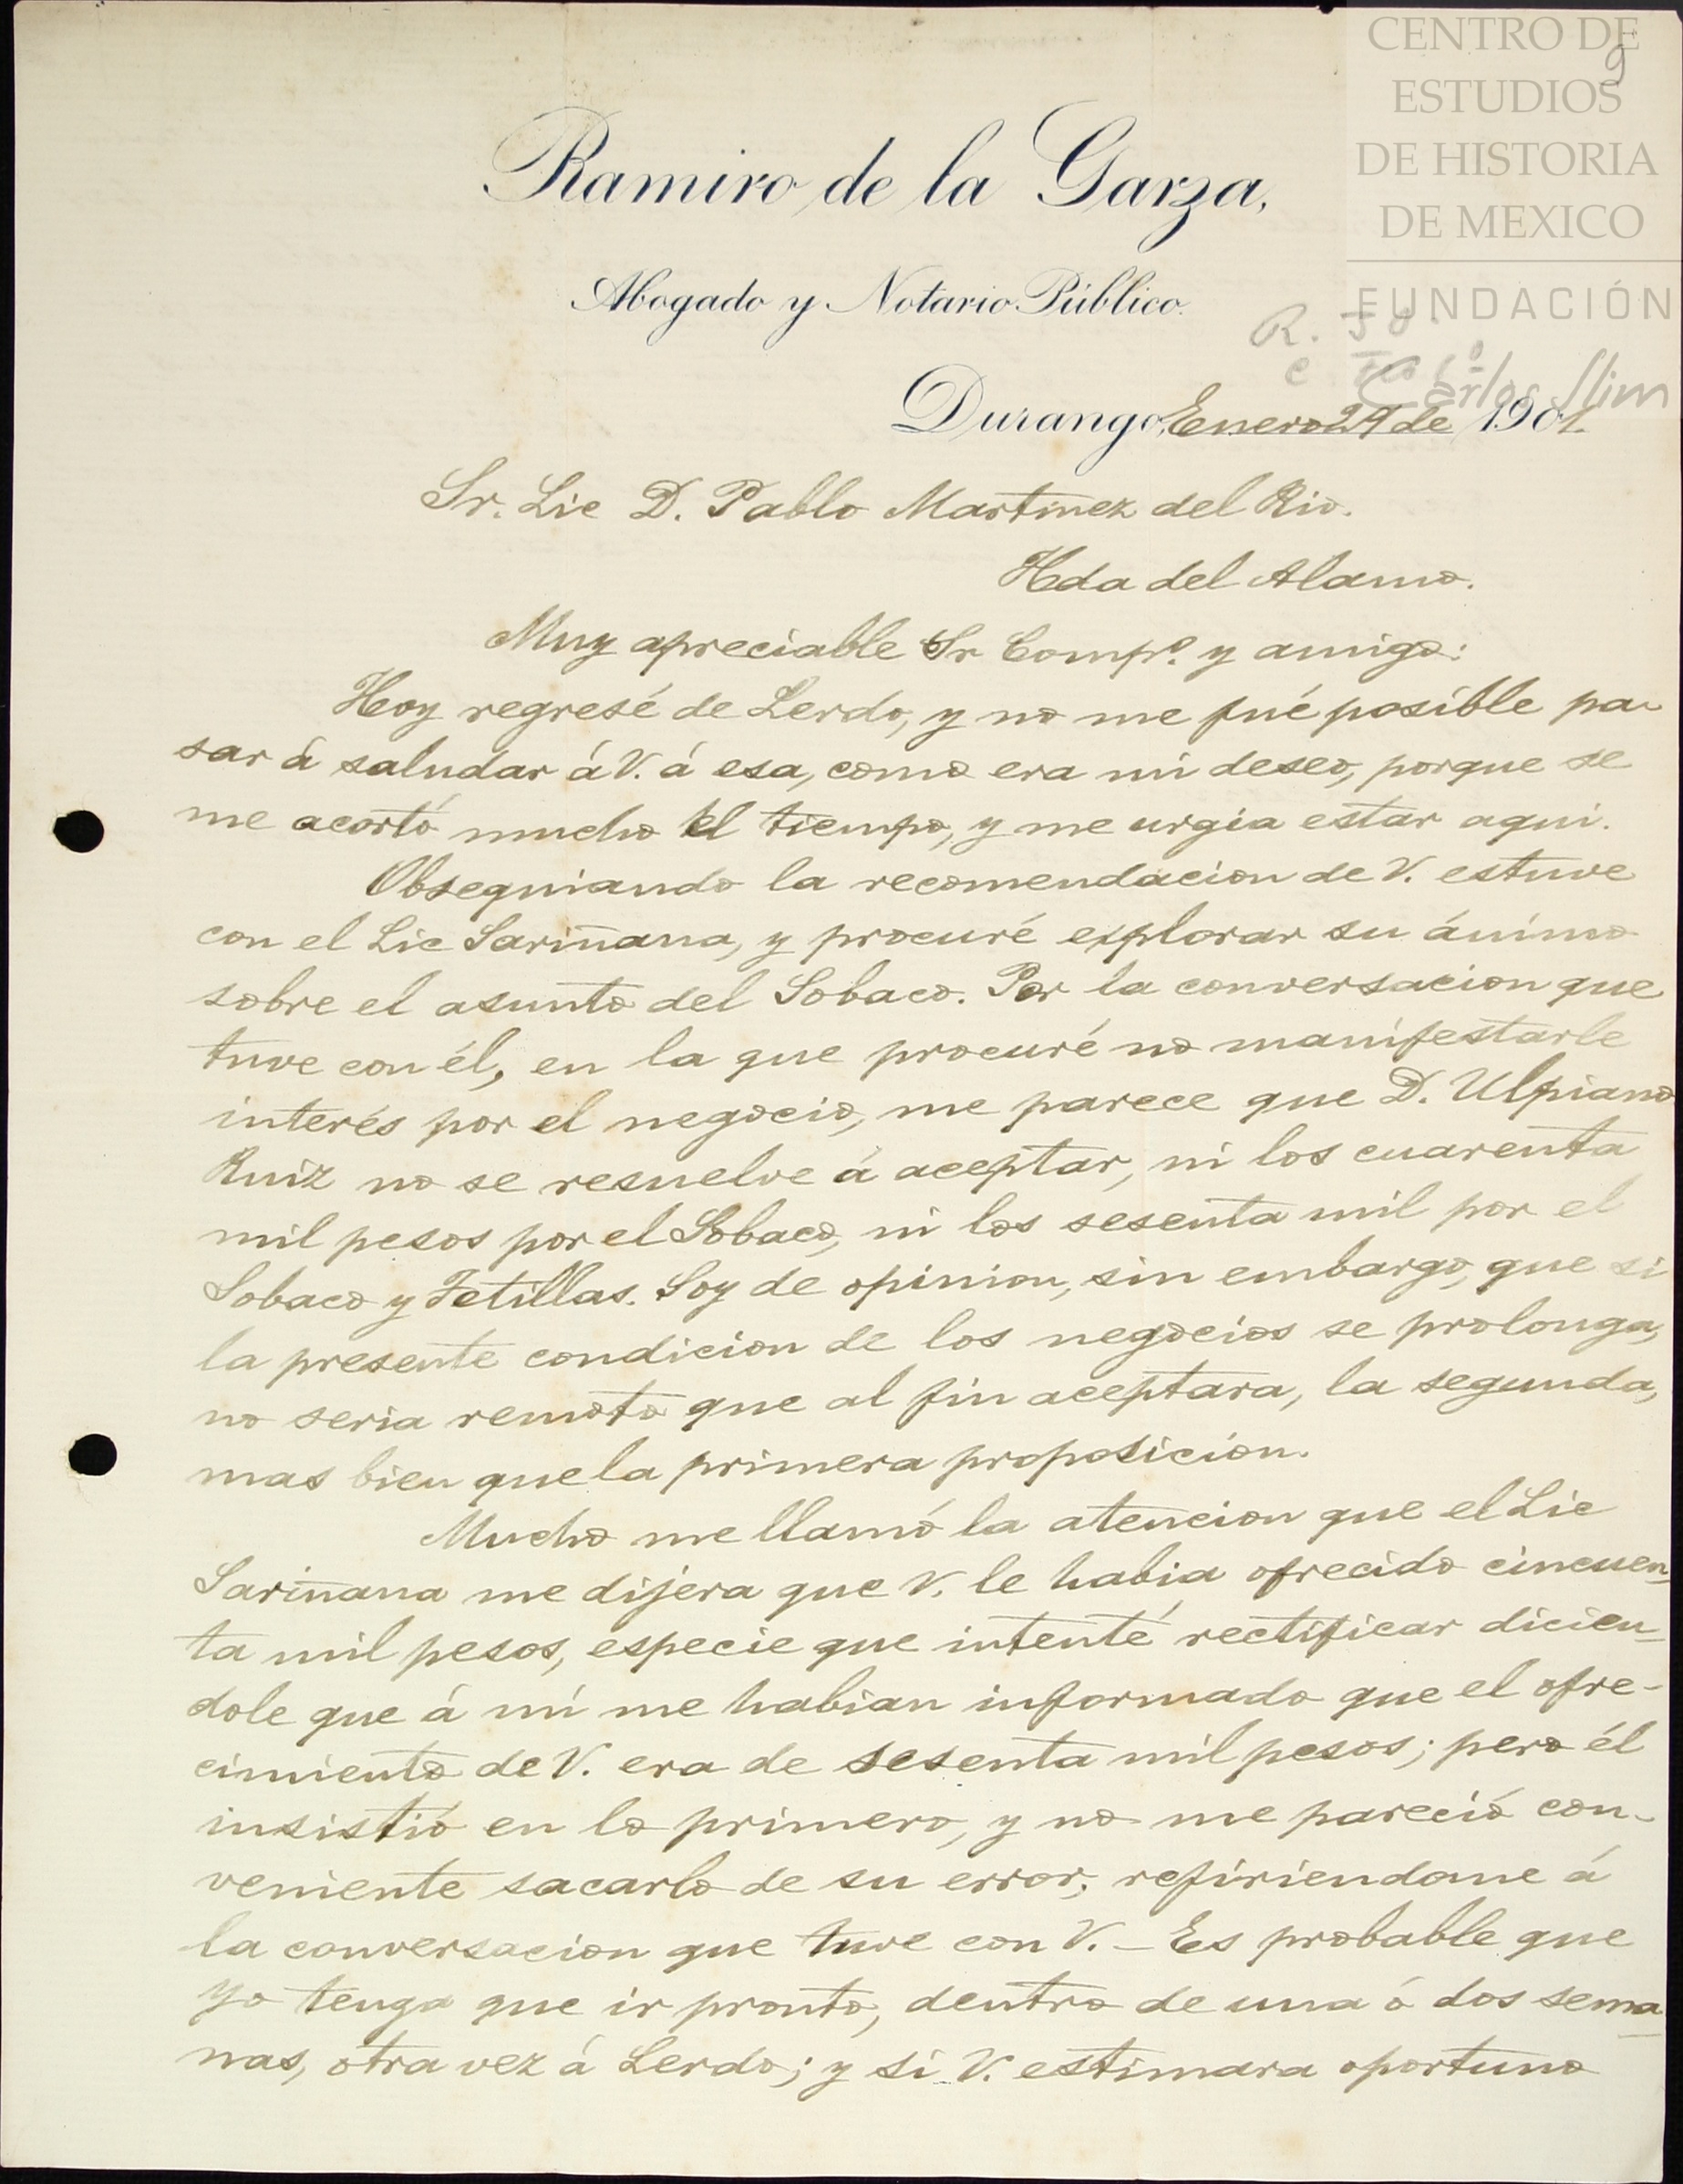 CENTRO DE
ESTUDIOS
DE HISTORIA
DE MEXICO
FUNDACIÓN
Carlos Slim
9
Ramiro de la Garza,
Abogado y Notario Público.
R.
Durango, Enero 29 de 1901.
Sr. Lic D. Pablo Martinez del Rio.
Hda del Alamo.
Muy apreciable Sr Comp.º y amigo:
Hoy regresé de Lerdo, y no me fué posible pa-
sar á saludar á V. á esa, como era mi deseo, porque se
me acortó mucho el tiempo, y me urgia estar aqui.
Obsequiando la recomendacion de V. estuve
con el Lic Sariñana, y procuré explorar su ánimo
sobre el asunto del Sobaco. Por la conversacion que
tuve con él, en la que procuré no manifestarle
interés por el negocio, me parece que D. Ulpiano
Ruiz no se resuelve á aceptar, ni los cuarenta
mil pesos por el Sobaco, ni los sesenta mil por el
Sobaco y Tetillas. Soy de opinion, sin embargo, que si
la presente condicion de los negocios se prolonga,
no seria remoto que al fin aceptara, la segunda,
mas bien que la primera proposicion.
Mucho me llamó la atencion que el Lic
Sariñana me dijera que V. le habia ofrecido cincuen-
ta mil pesos, especie que intenté rectificar dicien-
dole que á mi me habian informado que el ofre-
cimiento de V. era de sesenta mil pesos; pero él
insistió en lo primero, y no me pareció con-
veniente sacarlo de su error, refiriendome á
la conversacion que tuve con V. – Es probable que
yo tenga que ir pronto, dentro de una ó dos sema-
nas, otra vez á Lerdo; y si V. estimara oportuno